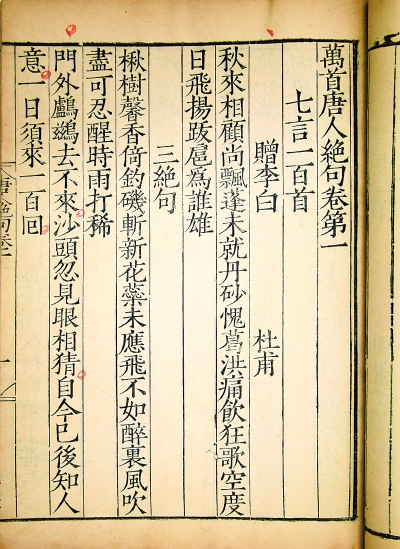 萬首唐人絕句卷第一
七言一百首
贈李白 杜甫
秋來相顧尚飄蓬未就丹砂愧葛洪痛飲狂歌空度
日飛揚跋扈為誰雄
三絕句
楸樹馨香倚釣磯斬新花蘂未應飛不如醉裏風吹
盡可忍醒時雨打稀
門外鸕鷀去不來沙頭忽見眼相猜自今已後知人
意一日須來一百回
唐絕句卷一